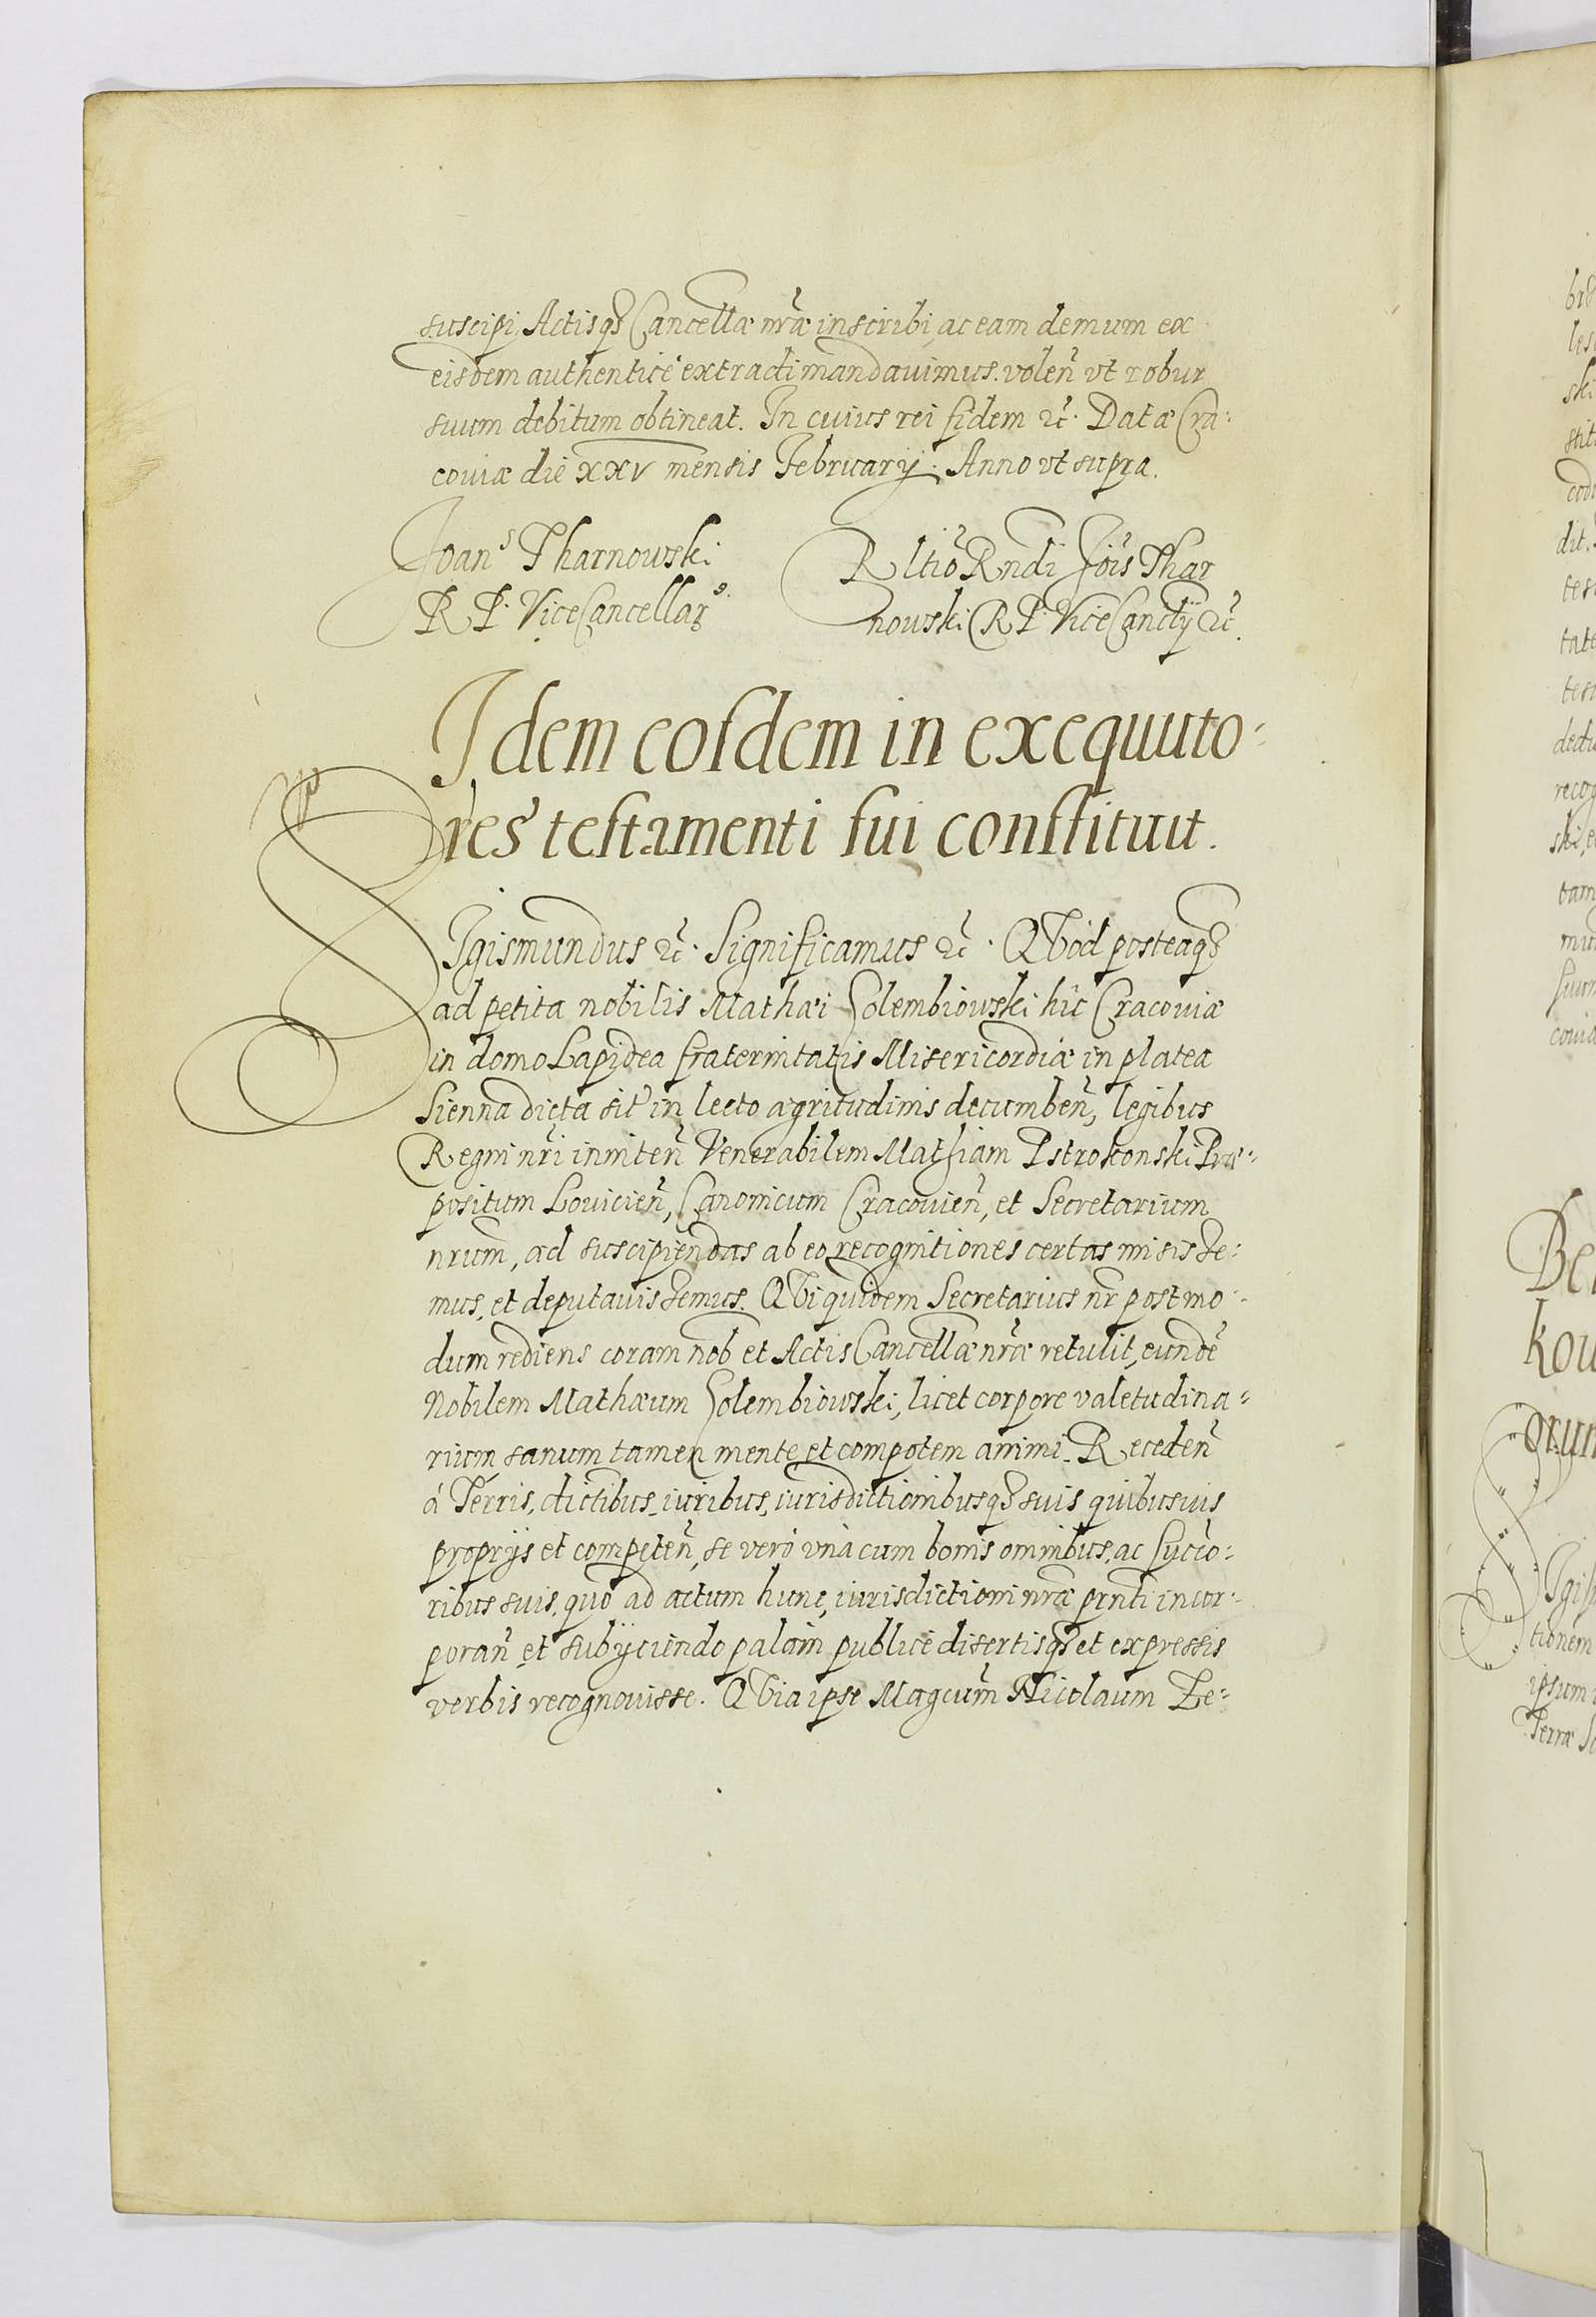 suscipi, Actisq3 Cancellæ nr̃æ inscribi, ac eam demum ex
eisdem authenticè extradi mandauimus. volen̄ vt robur
suum debitum obtineat. In cuius rei fidem ꝛc̄. Datæ Cra:
couiæ die XXV mensis Februarij. Anno vt supra.
Joanˢ Tharnowski
R P. ViceCancellarˢ.
R ltiõ Rndi Jõis Thar
nowski R P. ViceCanclij ꝛc̄.
Idem eosdem in exequuto:
res testamenti sui constituit.
SIgismundus ꝛc̄. Significamus ꝛc̄. QVòd posteaq3
ad petita nobilis Mathæi Golembiowski hîc Cracouiæ
in domo Lapidea fraternitatis Misericordiæ in platea
Sienna dicta sit̃ in lecto ægritudinis decumben̄, legibus
Regni nr̃i inniten̄ Venerabilem Mathiam Pstrokonski Præ:
positum Louicien̄, Canonicum Cracouien̄, et Secretarium
nrum̄, ad suscipiendas ab eo recognitiones certas misisse:
mus, et deputauissemus. QVi quidem Secretarius nr̃ postmo:
dum rediens coram nob et Actis Cancellæ nr̃æ retulit, eundē
Nobilem Mathæum Golembiowski, licet corpore valetudina:
rium, sanum tamen mente et compotem animi. Receden̄
à Terris, dictibus, iuribus, iurisdictionibusq3 suis quibusuis
proprijs et competen̄, se verò vnà cum bonis omnibus, ac succ̄o:
ribus suis, quo ad actum hunc, iurisdictioni nr̃æ pr̃nti incor:
poran̄ et subijciendo palàm publicè disertisq3 et expressis
verbis recognouisse. QVia ipse Magcum̄ Nicolaum Ze: